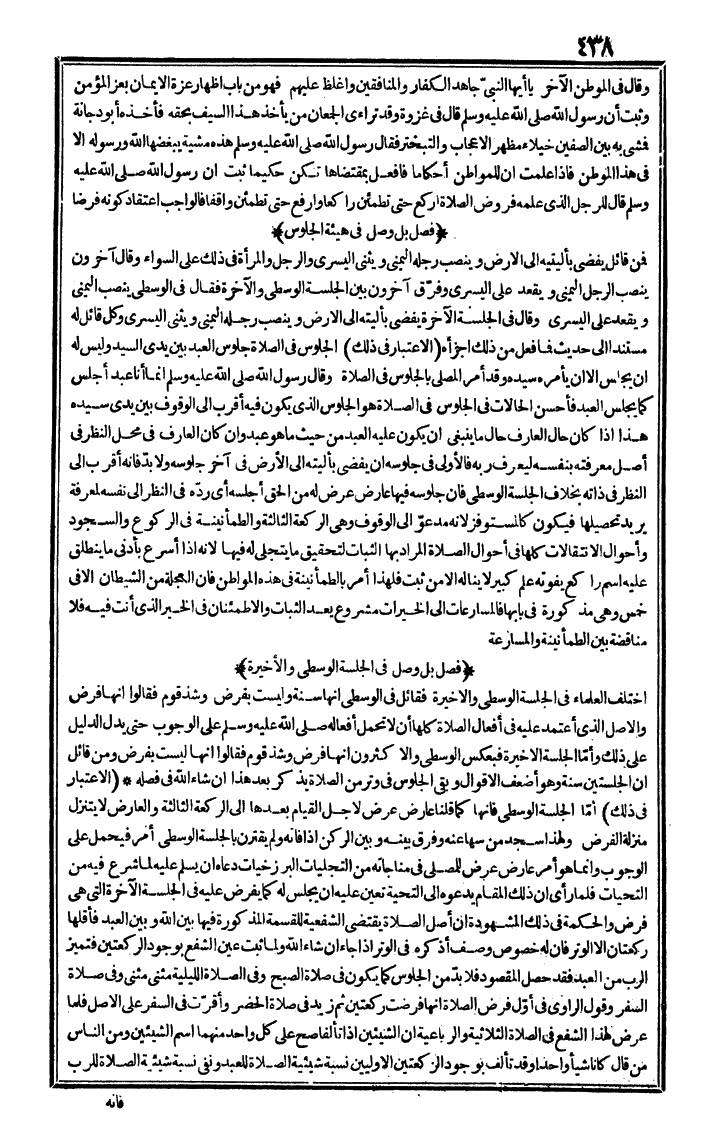 ٤٣٨
وقال فى الموطن الآخر ياأيها النبيّ جاهد الكفار والمنافقين واغلظ عليهم فهو من باب اظهار عزة الايمان بعز المؤمن
وثبت أن رسول الله صلى الله عليه وسلم قال فى غزوة وقد تراءى الجمعان من يأخذ هذا السيف بحقه فأخذه أبو دجانة
فشى به بين الصفين خيلاء مظهر الاعجاب والتبختر فقال رسول الله صلى الله عليه وسلم هذه مشية يبغضها الله ورسوله الا
فى هذا الموطن فاذا علمت ان للمواطن أحكاما فافعل بمقتضاها تكن حكيما ثبت ان رسول الله صلى الله عليه
وسلم قال للرجل الذى علمه فروض الصلاة اركع حتى تطمئن راكعا وارفع حتى تطمئن واقفا فالواجب اعتقاد كونه فرضا
﴿فصل بل وصل فى هيئة الجلوس﴾
فمن قائل يفضى بأليتيه الى الارض و ينصب رجله اليمنى و يثنى اليسرى والرجل والمرأة فى ذلك على السواء وقال آخرون
ينصب الرجل اليمنى و يقعد على اليسرى وفرّق آخرون بين الجلسة الوسطى والآخرة فقال فى الوسطى ينصب اليمنى
و يقعد على اليسرى وقال فى الجلسة الآخرة يفضى بأليته الى الارض و ينصب رجله اليمنى و يثنى اليسرى وكل قائل له
مستند الى حديث فافعل من ذلك اجزأه (الاعتبار فى ذلك) الجلوس فى الصلاة جلوس العبد بين يدى السيد وليس له
ان يجلس الا ان يأمره سيده وقد أمر المصلى بالجلوس فى الصلاة وقال رسول الله صلى الله عليه وسلم انما أنا عبد أجلس
كما يجلس العبد فأحسن الحالات فى الجلوس فى الصلاة هو الجلوس الذى يكون فيه أقرب الى الوقوف بين يدى سيده
هذا اذا كان حال العارف حال ما ينبغى ان يكون عليه العبد من حيث ما هو عبد وان كان العارف فى محل النظر فى
أصل معرفته بنفسه ليعرف ربه فالأولى فى جلوسه ان يفضى بأليته الى الأرض فى آخر جلوسه ولا بدّ فانه أقرب الى
النظر فى ذاته بخلاف الجلسة الوسطى فان جلوسه فيها عارض عرض له من الحق أجلسه أى ردّه فى النظر الى نفسه لمعرفة
يريد تحصيلها فيكون كالمستوفز لانه مدعوّ الى الوقوف وهى الركعة الثالثة والطمأنينة فى الركوع والسجود
وأحوال الانتقالات كلها فى أحوال الصلاة المراد بها الثبات لتحقيق ما يتجلى له فيها لانه اذا أسرع بأدنى ما ينطلق
عليه اسم راكع يفوته علم كبير لا يناله الا من ثبت فلهذا أمر بالطمأنينة فى هذه المواطن فان العجلة من الشيطان الا فى
خمس وهى مذكورة فى بابها فالمسارعات الى الخيرات مشروع بعد الثبات والاطمئنان فى الخير الذى أنت فيه فلا
مناقضة بين الطمأنينة والمسارعة
﴿فصل بل وصل فى الجلسة الوسطى والأخيرة﴾
اختلف العلماء فى الجلسة الوسطى والاخيرة فقائل فى الوسطى انها سنة وليست بفرض وشذ قوم فقالوا انها فرض
والاصل الذى أعتمد عليه فى أفعال الصلاة كلها أن لا تحمل أفعاله صلى الله عليه وسلم على الوجوب حتى يدل الدليل
على ذلك وأمّا الجلسة الاخيرة فبعكس الوسطى والاكثرون انها فرض وشذ قوم فقالوا انها ليست بفرض ومن قائل
ان الجلستين سنة وهو أضعف الاقوال و بقى الجلوس فى وتر من الصلاة يذكر بعد هذا ان شاء الله فى فصله * (الاعتبار
فى ذلك) أمّا الجلسة الوسطى فانها كما قلنا عارض عرض لاجل القيام بعدها الى الركعة الثالثة والعارض لا يتنزل
منزلة الفرض ولهذا سجد من سها عنه وفرق بينه و بين الركن اذا فانه ولم يقترن بالجلسة الوسطى أمر فيحمل على
الوجوب وانما هو أمر عارض عرض للمصلى فى مناجاته من التجليات البرزخيات دعاه ان يسلم عليه لما شرع فيه من
التحيات فلما رأى ان ذلك المقام يدعوه الى التحية تعين عليه ان يجلس له كما يفرض عليه فى الجلسة الآخرة التى هى
فرض والحكمة فى ذلك المشهودة ان أصل الصلاة يقتضى الشفعية للقسمة المذكورة فيها بين الله و بين العبد فأقلها
ركعتان الا الوتر فان له خصوص وصف أذكره فى الوتر اذا جاء ان شاء الله ولما ثبت عين الشفع بوجود الركعتين فتميز
الرب من العبد فقد حصل المقصود فلا بدّ من الجلوس كما يكون فى صلاة الصبح وفى الصلاة الليلية مثنى مثنى وفى صلاة
السفر وقول الراوى فى أوّل فرض الصلاة انها فرضت ركعتين ثم زيد فى صلاة الحضر وأقرّت فى السفر على الاصل فلما
عرض لهذا الشفع فى الصلاة الثلاثية والرباعية ان الشيئين اذا تألفا صح على كل واحد منهما اسم الشيئين ومن الناس
من قال كانا شيأ واحدا وقد تألف بوجود الركعتين الاوليين نسبة شيئية الصلاة للعبد ونفى نسبة شيئية الصلاة للرب
فانه